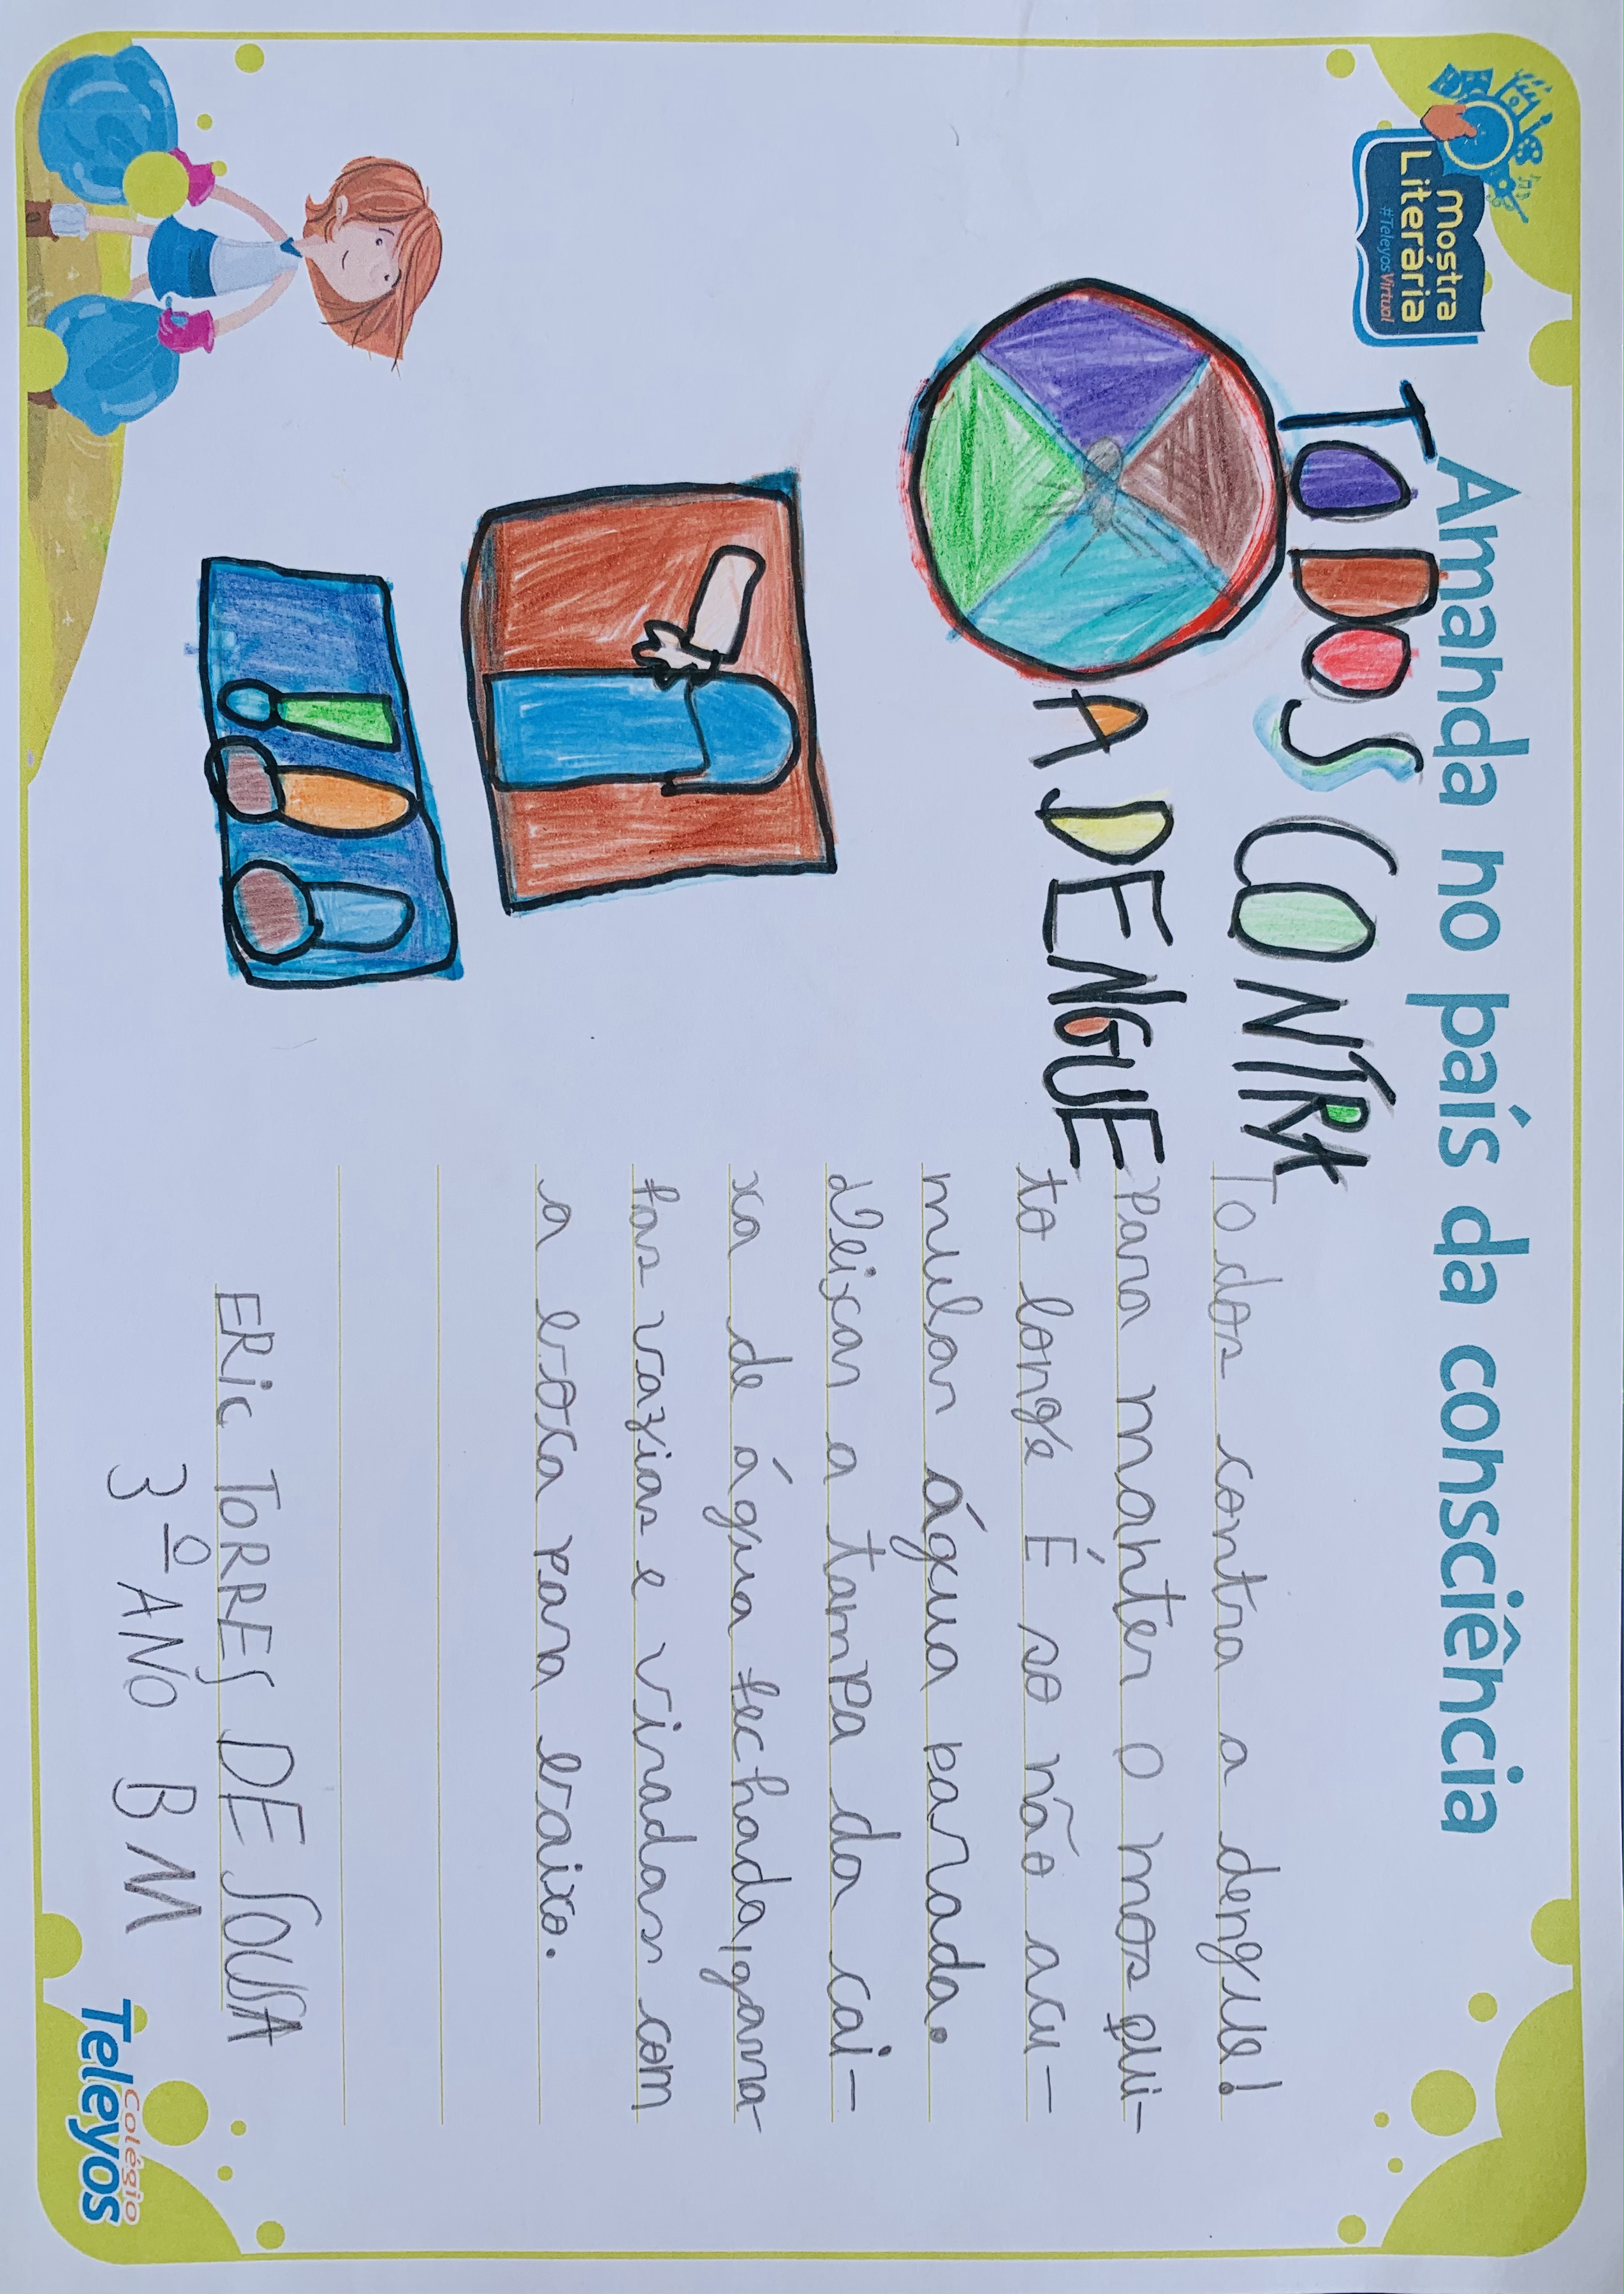 mostra
Literária
#TeleyosVirtual
Amanda no país da consciência
TODOS CONTRA
A DENGUE
Todos contra a dengue!
Para manter o mosqui-
to longe É so não acu-
mular água parada.
Deixar a tampa da cai-
xa de água fechada, garra-
fas vazias e viradas com
a boca para baixo.
ERic TORRES DE SOUSA
3º ANO BM
Colégio
Teleyos